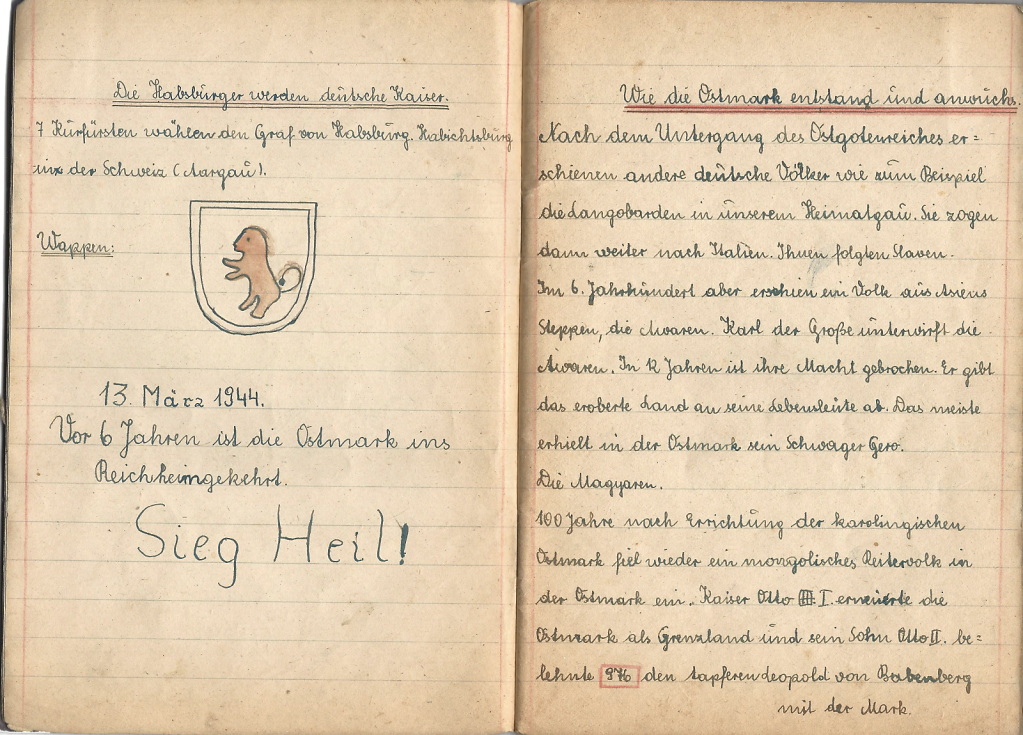 Die Habsburger werden deutsche Kaiser.
7 Kurfürsten wählen den Graf von Habsburg. Habichtsburg
in der Schweiz (Aargau).
Wappen:
13. März 1944.
Vor 6 Jahren ist die Ostmark ins
Reich heimgekehrt.
Sieg Heil!
Wie die Ostmark entstand und anwuchs.
Nach dem Untergang des Ostgotenreiches er=
schienen andere deutsche Völker wie zum Beispiel
die Langobarden in unserem Heimatgau. Sie zogen
dann weiter nach Italien. Ihnen folgten Slaven.
Im 6. Jahrhundert aber erschien ein Volk aus Asiens
Steppen, die Awaren. Karl der Große unterwirft die
Awaren. In 12 Jahren ist ihre Macht gebrochen. Er gibt
das eroberte Land an seine Lebensleute ab. Das meiste
erhielt in der Ostmark sein Schwager Gero.
Die Magyaren.
100 Jahre nach Errichtung der karolingischen
Ostmark fiel wieder ein mongolisches Reitervolk in
der Ostmark ein. Kaiser Otto I. erneuerte die
Ostmark als Grenzland und sein Sohn Otto II. be=
lehnte 976 den tapferen Leopold von Babenberg
mit der Mark.